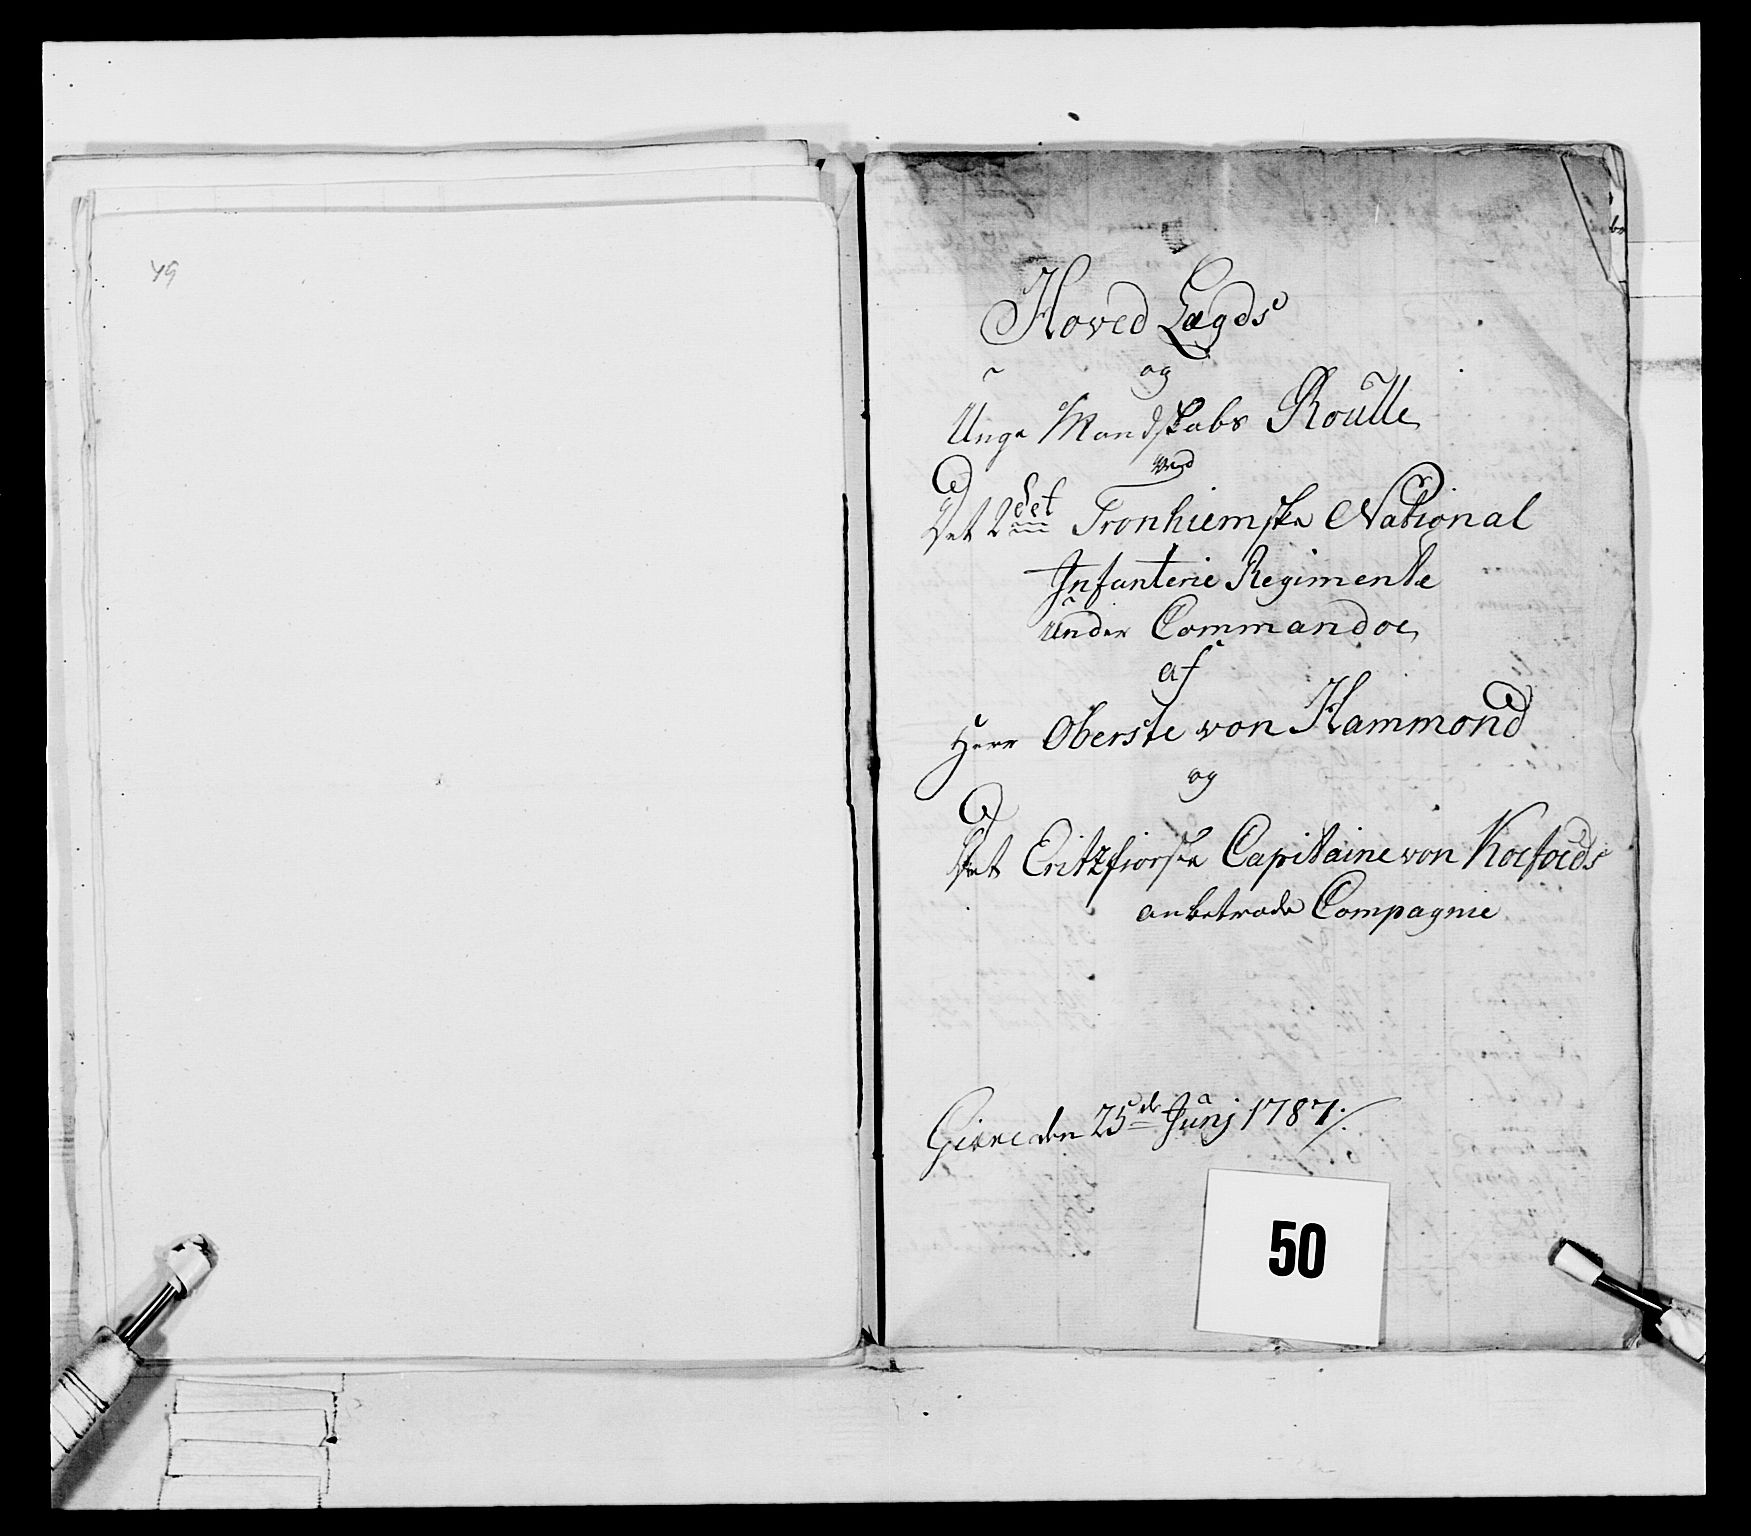 49
Hoved Lægds
og
Unge Mandskabs Roulle
ved
Det 2det Tronhiemske National
Infanterie Regimente
under Commandoe
af
Herr Oberste von Hammond
og
Det Eritzfiorske Capitaine von Koefoeds
anbetrode Compagnie
den 25de Junj 1787
50